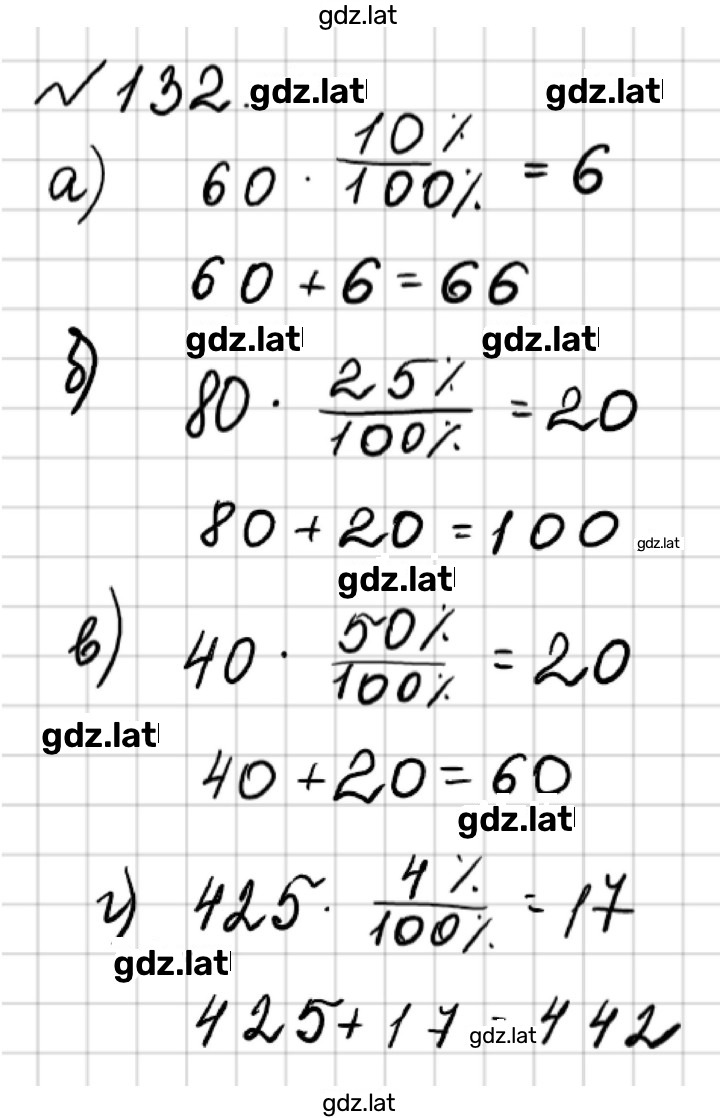 gdz.lat
№132. gdz.lat gdz.lat
а) 60 · 10%/100% = 6
60 + 6 = 66
gdz.lat gdz.lat
б) 80 · 25%/100% = 20
80 + 20 = 100 gdz.lat
gdz.lat
в) 40 · 50%/100% = 20
gdz.lat
40 + 20 = 60
gdz.lat
г) 425 · 4%/100% = 17
gdz.lat
425 + 17 = 442 gdz.lat
gdz.lat